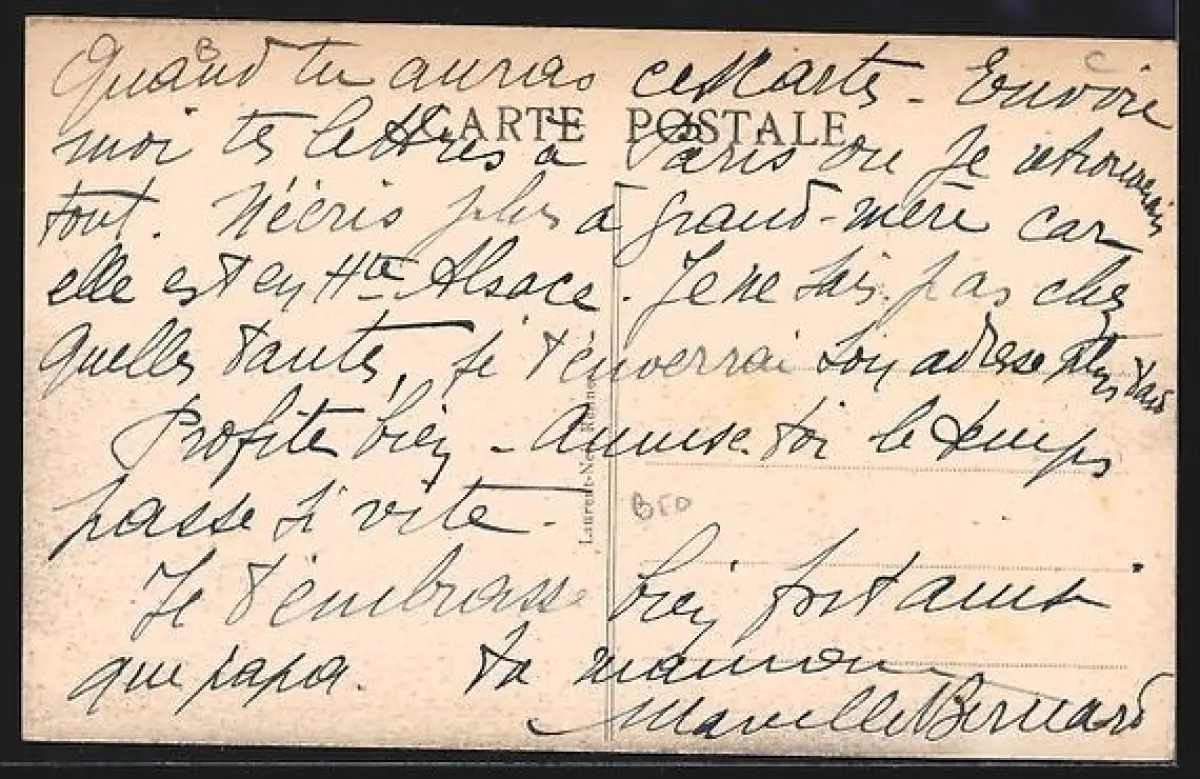 Quand tu auras ce Mart - Envoie
CARTE POSTALE
moi tes lettres à Paris ou je retrouverais
tout. N'écris plus à grand-mère car
elle est en Hte Alsace. Je ne sais pas chez
quelles tantes, je t'enverrai son adresse plus tard
Profite bien - Amuse-toi le temps
passe si vite -
BFO
Je t'embrasse bien fort ainsi
que papa. Ta maman
Bernard
B
C